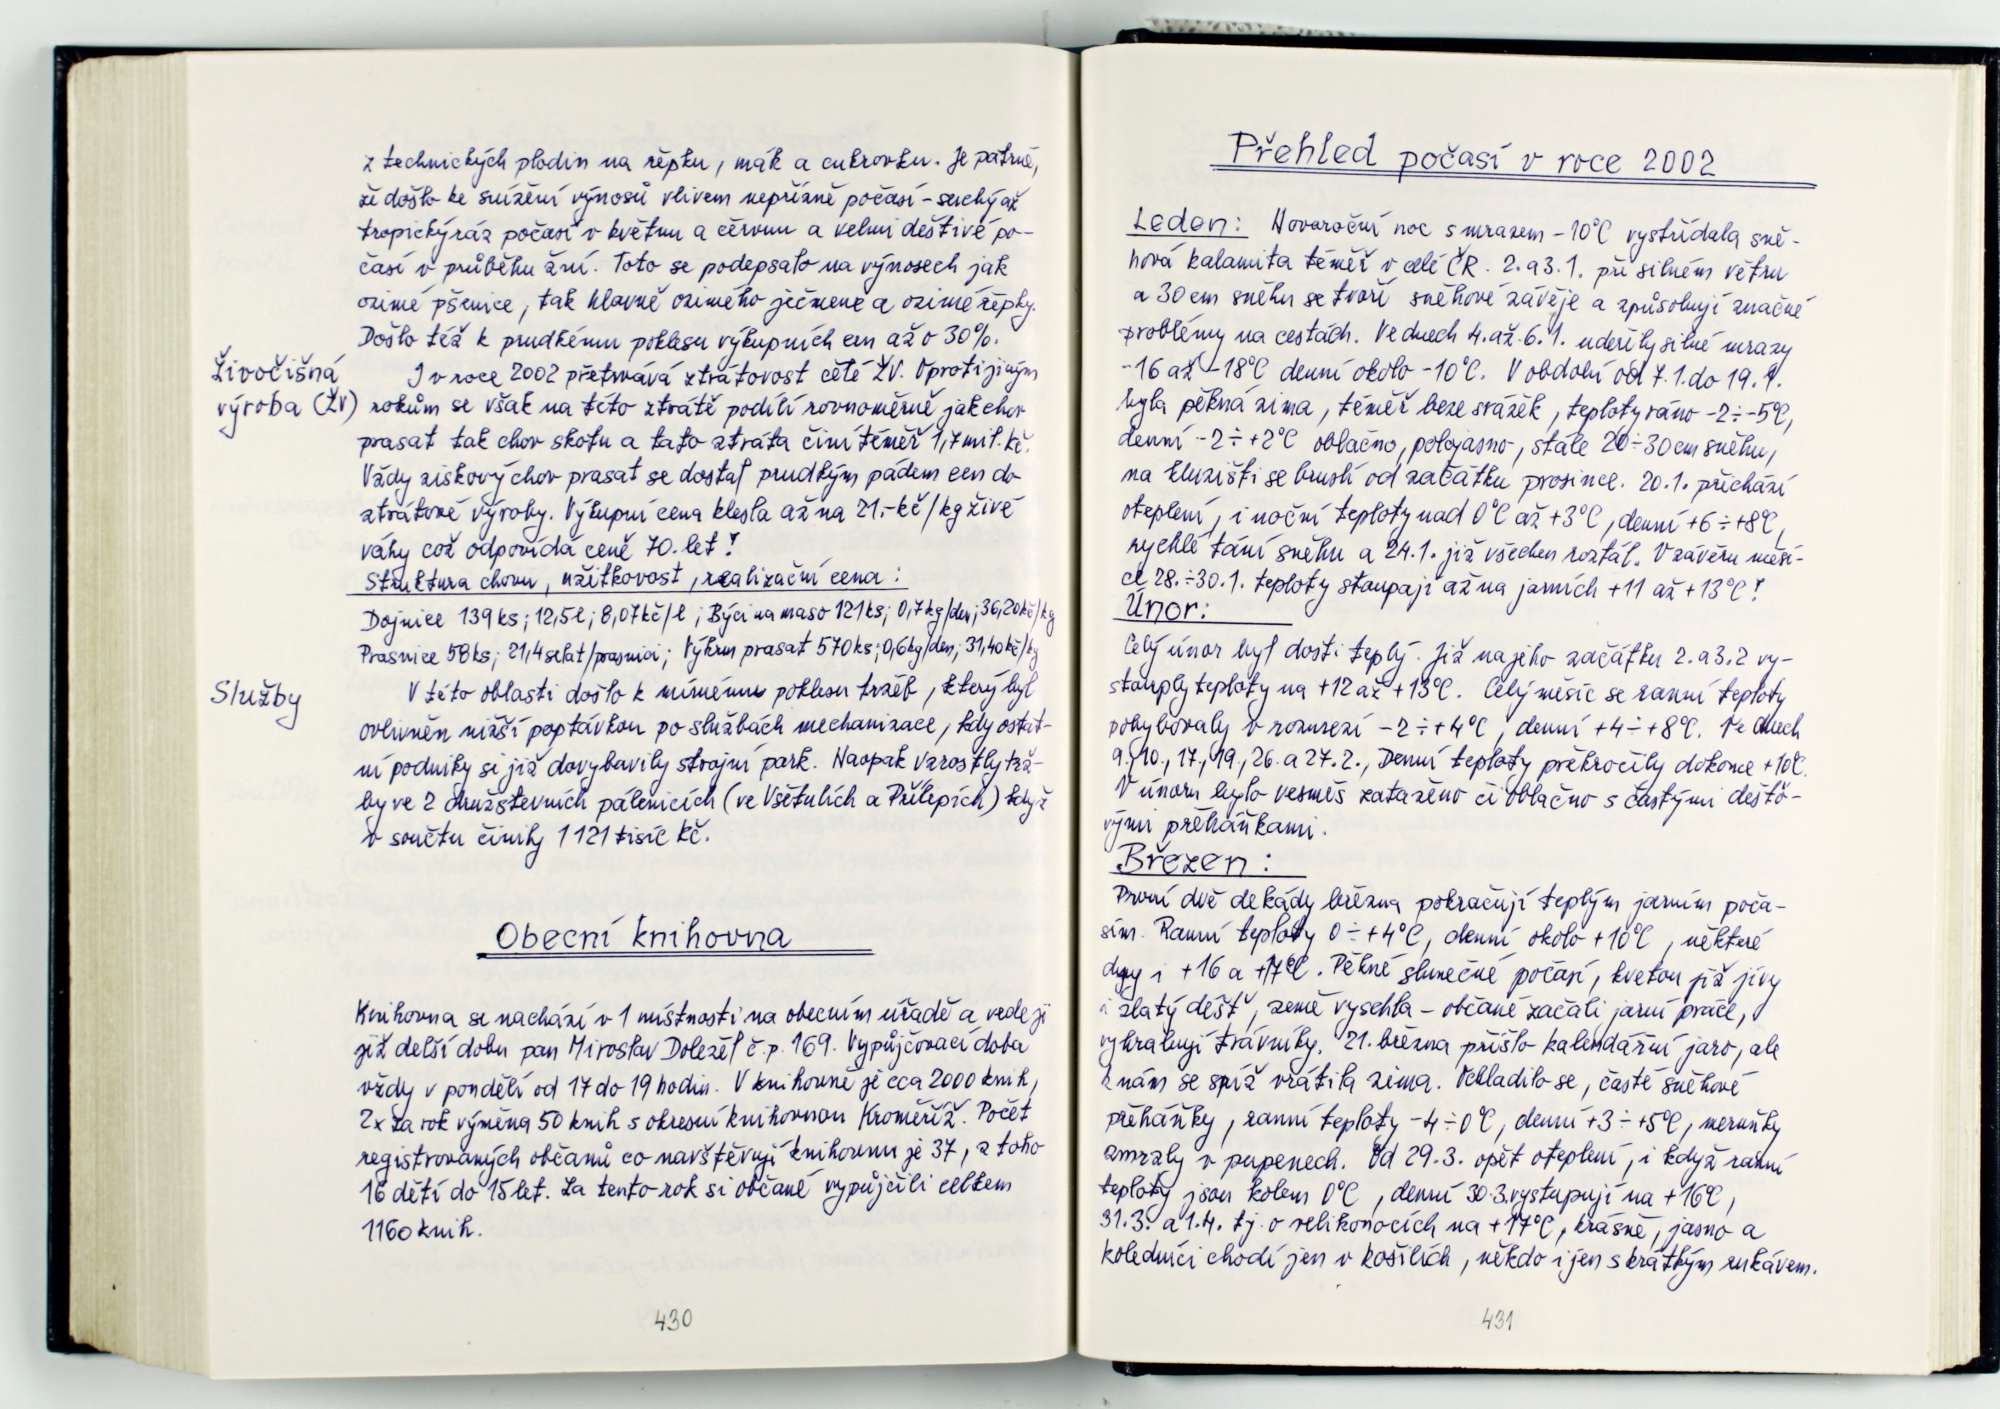 z technických plodin na řepku, mák a cukrovku. Je patrné,
že došlo ke snížení výnosů vlivem nepřízně počasí - suchý až
tropický ráz počasí v květnu a červnu a velmi deštivé po-
časí v průběhu žní. Toto se podepsalo na výnosech jak
ozimé pšenice, tak hlavně ozimého ječmene a ozimé řepky.
Došlo též k prudkému poklesu výkupních cen až o 30%.
Živočišná
výroba (ŽV)
I v roce 2002 přetrvává ztrátovost celé ŽV. Oproti jiným
rokům se však na této ztrátě podílí rovnoměrně jak chov
prasat tak chov skotu a tato ztráta činí téměř 1,7 mil. kč.
Vždy ziskový chov prasat se dostal prudkým pádem cen do
ztrátové výroby. Výkupní cena klesla až na 21,- kč/kg živé
váhy což odpovídá ceně 70. let!
Struktura chovu, užitkovost, realizační cena:
Dojnice 139 ks; 12,5 l; 8,07 kč/l; Býci na maso 121 ks; 0,7 kg/den; 36,20 kč/kg
Prasnice 58 ks; 21,4 selat/prasnici; Výkrm prasat 570 ks; 0,6 kg/den; 31,40 kč/kg
Služby
V této oblasti došlo k mírnému poklesu tržeb, který byl
ovlivněn nižší poptávkou po službách mechanizace, kdy ostat-
ní podniky si již dovybavily strojní park. Naopak vzrostly trž-
by ve 2 družstevních pálenicích (ve Všetulích a Přílepích) když
v součtu činily 1 121 tisíc kč.
Obecní knihovna
Knihovna se nachází v 1 místnosti na obecním úřadě a vede ji
již delší dobu pan Miroslav Doležel č.p. 169. Vypůjčovací doba
vždy v pondělí od 17 do 19 hodin. V knihovně je cca 2000 knih,
2x za rok výměna 50 knih s okresní knihovnou Kroměříž. Počet
registrovaných občanů co navštěvují knihovnu je 37, z toho
16 dětí do 15 let. Za tento rok si občané vypůjčili celkem
1160 knih.
430
Přehled počasí v roce 2002
Leden: Novoroční noc s mrazem -10°C vystřídala sně-
hová kalamita téměř v celé ČR. 2. a 3.1. při silném větru
a 30 cm sněhu se tvoří sněhové závěje a způsobují značné
problémy na cestách. Ve dnech 4. až 6.1. udeřily silné mrazy
-16 až -18°C denní okolo -10°C. V období od 7.1. do 19.1.
byla pěkná zima, téměř beze srážek, teploty ráno -2 ÷ -5°C,
denní -2 ÷ +2°C oblačno, polojasno, stále 20 ÷ 30 cm sněhu,
na kluzišti se bruslí od začátku prosince. 20.1. přichází
oteplení, i noční teploty nad 0°C až +3°C, denní +6 ÷ +8°C,
rychlé tání sněhu a 24.1. již všechen roztál. V závěru měsí-
ce 28. ÷ 30.1. teploty stoupají až na jarních +11 až +13°C!
Únor:
Celý únor byl dosti teplý. Již na jeho začátku 2. a 3.2 vy-
stouply teploty na +12 až +13°C. Celý měsíc se ranní teploty
pohybovaly v rozmezí -2 ÷ +4°C, denní +4 ÷ +8°C. Ve dnech
9., 10., 17., 19., 26. a 27.2., Denní teploty překročily dokonce +10°C.
V únoru bylo vesměs zataženo či oblačno s častými dešťo-
vými přeháňkami.
Březen:
První dvě dekády března pokračují teplým jarním poča-
sím. Ranní teploty 0 ÷ +4°C, denní okolo +10°C, některé
dny i +16 a +17°C. Pěkné slunečné počasí, kvetou již jívy
i zlatý déšť, země vyschla - občané začali jarní práce,
vyhrabují trávníky. 21. března přišlo kalendářní jaro, ale
k nám se spíš vrátila zima. Ochladilo se, časté sněhové
přeháňky, ranní teploty -4 ÷ 0°C, denní +3 ÷ +5°C, meruňky
zmrzly v pupenech. Od 29.3. opět oteplení, i když ranní
teploty jsou kolem 0°C, denní 30.3. vystupují na +16°C,
31.3. a 1.4. tj. o velikonocích na +17°C, krásně, jasno a
koledníci chodí jen v košilích, někdo i jen s krátkým rukávem.
431